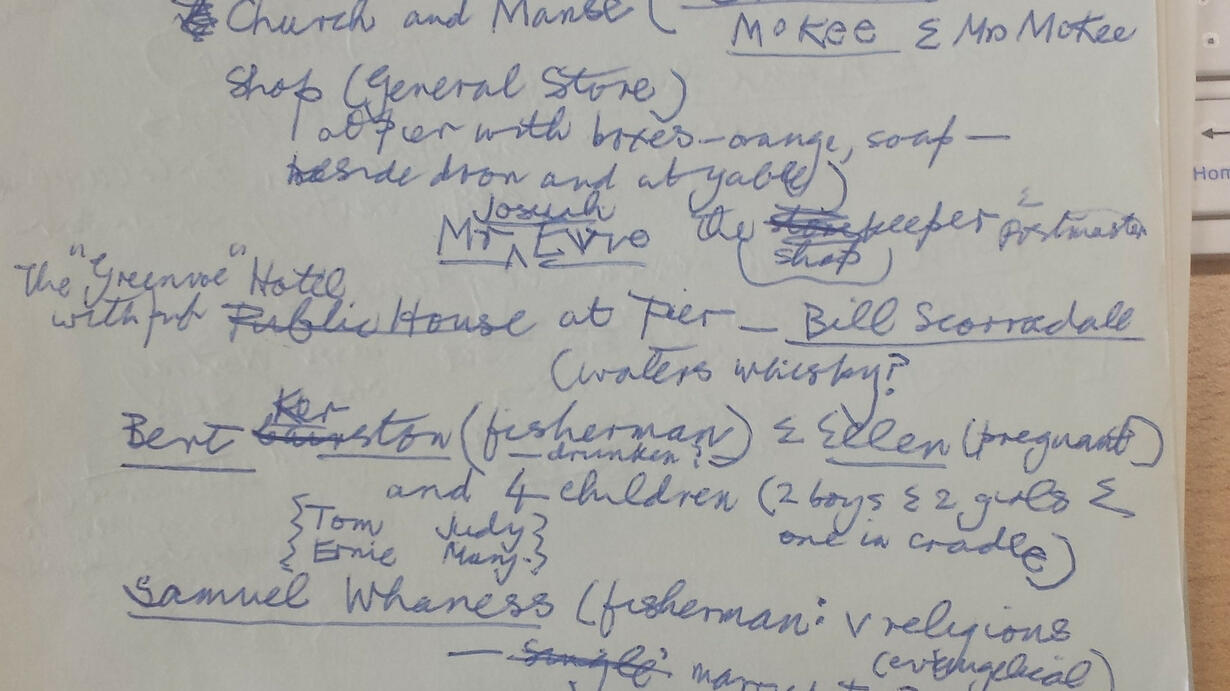 Church and Manse (
McKee & Mrs McKee
Shop (General Store)
at Pier with boxes - orange, soap -
beside door and at gable)
Josiah
Mr ^ Evvie the keeper & postmaster
(shop)
The "Greenvoe" Hotel
with pub Public House at Pier - Bill Scorradale
(waters whisky?
Ker
Bert ston (fisherman) & Ellen (pregnant)
- drunken? -
and 4 children (2 boys & 2 girls &
one in cradle)
{Tom Judy}
{Ernie Mary}
Samuel Whaness (fisherman: v religious
(evangelical)
- single
Hom